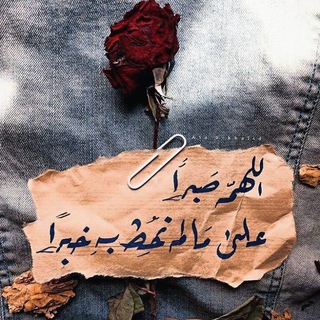 اللهمّ صَبراً
على مَا لم نُحِط بهِ خبراً